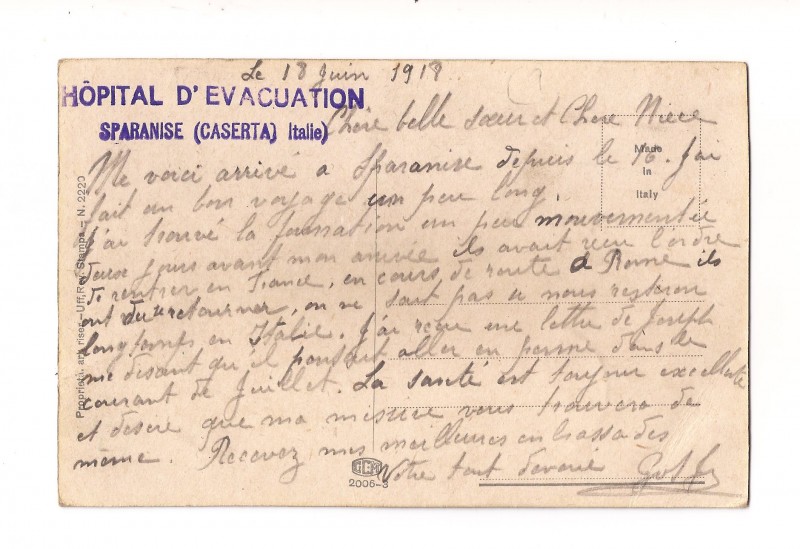 Le 18 Juin 1918
HÔPITAL D'EVACUATION
SPARANISE (CASERTA) Italie)
Chère belle sœur et Chere Niece
Me voici arrivé a Sparanise depuis le 16. J'ai
fait un bon voyage un peu long.
j'ai trouvé la formation un peu mouvementée
deux jours avant mon arrivée ils avait reçu l'ordre
de rentrer en France, en cours de route a Rome ils
ont du retourner, on ne sait pas si nous resteron
longtemps en Italie. J'ai reçu une lettre de Joseph
me disant qu'il pourrait aller en perme dans le
courant de Juillet. La santé est toujour excellente
et desire que ma missive vous trouvera de
même. Recevez mes meilleures embrassades
Votre tout devoué
Made
in
Italy
Propriétà artis. riser. - Uff. Rev. Stampa - N. 2220
GEM
2006-3